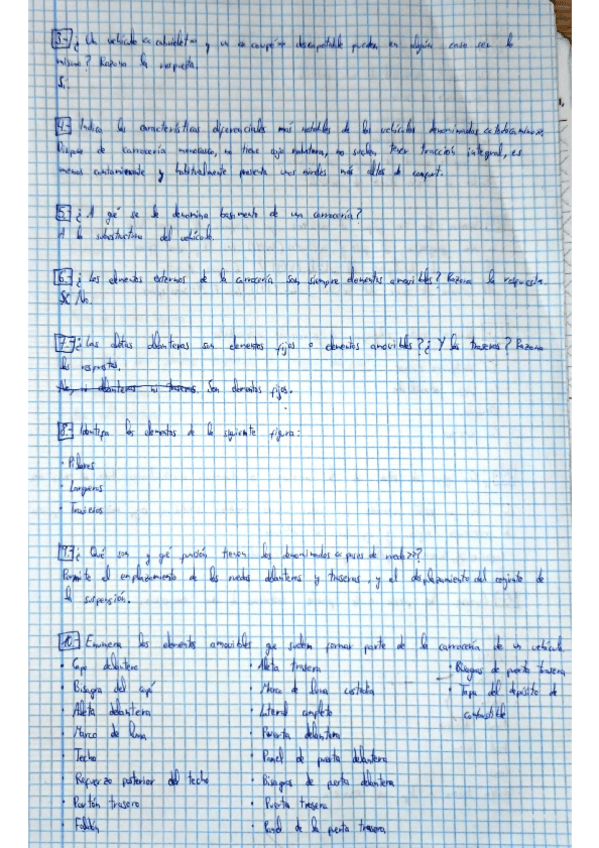 3.- ¿Un vehículo «cabriolet» y un «coupé» descapotable pueden en algún caso ser lo
mismo? Razona la respuesta.
Si.
4.- Indica las características diferenciales más notables de los vehículos denominados «todocamino».
Dispone de carrocería monocasco, no tiene caja reductora, no suelen traer tracción integral, es
menos contaminante y habitualmente presenta unos niveles más altos de confort.
5.- ¿A qué se le denomina basamento de una carrocería?
A la subestructura del vehículo.
6.- ¿Los elementos externos de la carrocería son siempre elementos amovibles? Razona la respuesta.
No.
7.- ¿Las aletas delanteras son elementos fijos o elementos amovibles? ¿Y las traseras? Razona
las respuestas.
No, ni delanteras ni traseras. Son elementos fijos.
8.- Identifica los elementos de la siguiente figura:
· Pilares
· Largueros
· Traviesas
9.- ¿Qué son y qué función tienen los denominados «pasos de rueda»?
Permite el emplazamiento de las ruedas delanteras y traseras, y el desplazamiento del conjunto de
la suspensión.
10.- Enumera los elementos amovibles que suelen formar parte de la carrocería de un vehículo
· Capo delantero
· Bisagra del capó
· Aleta delantera
· Marco de luna
· Techo
· Refuerzo posterior del techo
· Portón trasero
· Faldón
· Aleta trasera
· Marco de luna custodia
· Lateral completo
· Puerta delantera
· Panel de puerta delantera
· Bisagras de puerta delantera
· Puerta trasera
· Panel de la puerta trasera
· Bisagras de puerta trasera
· Tapa del depósito de
combustible